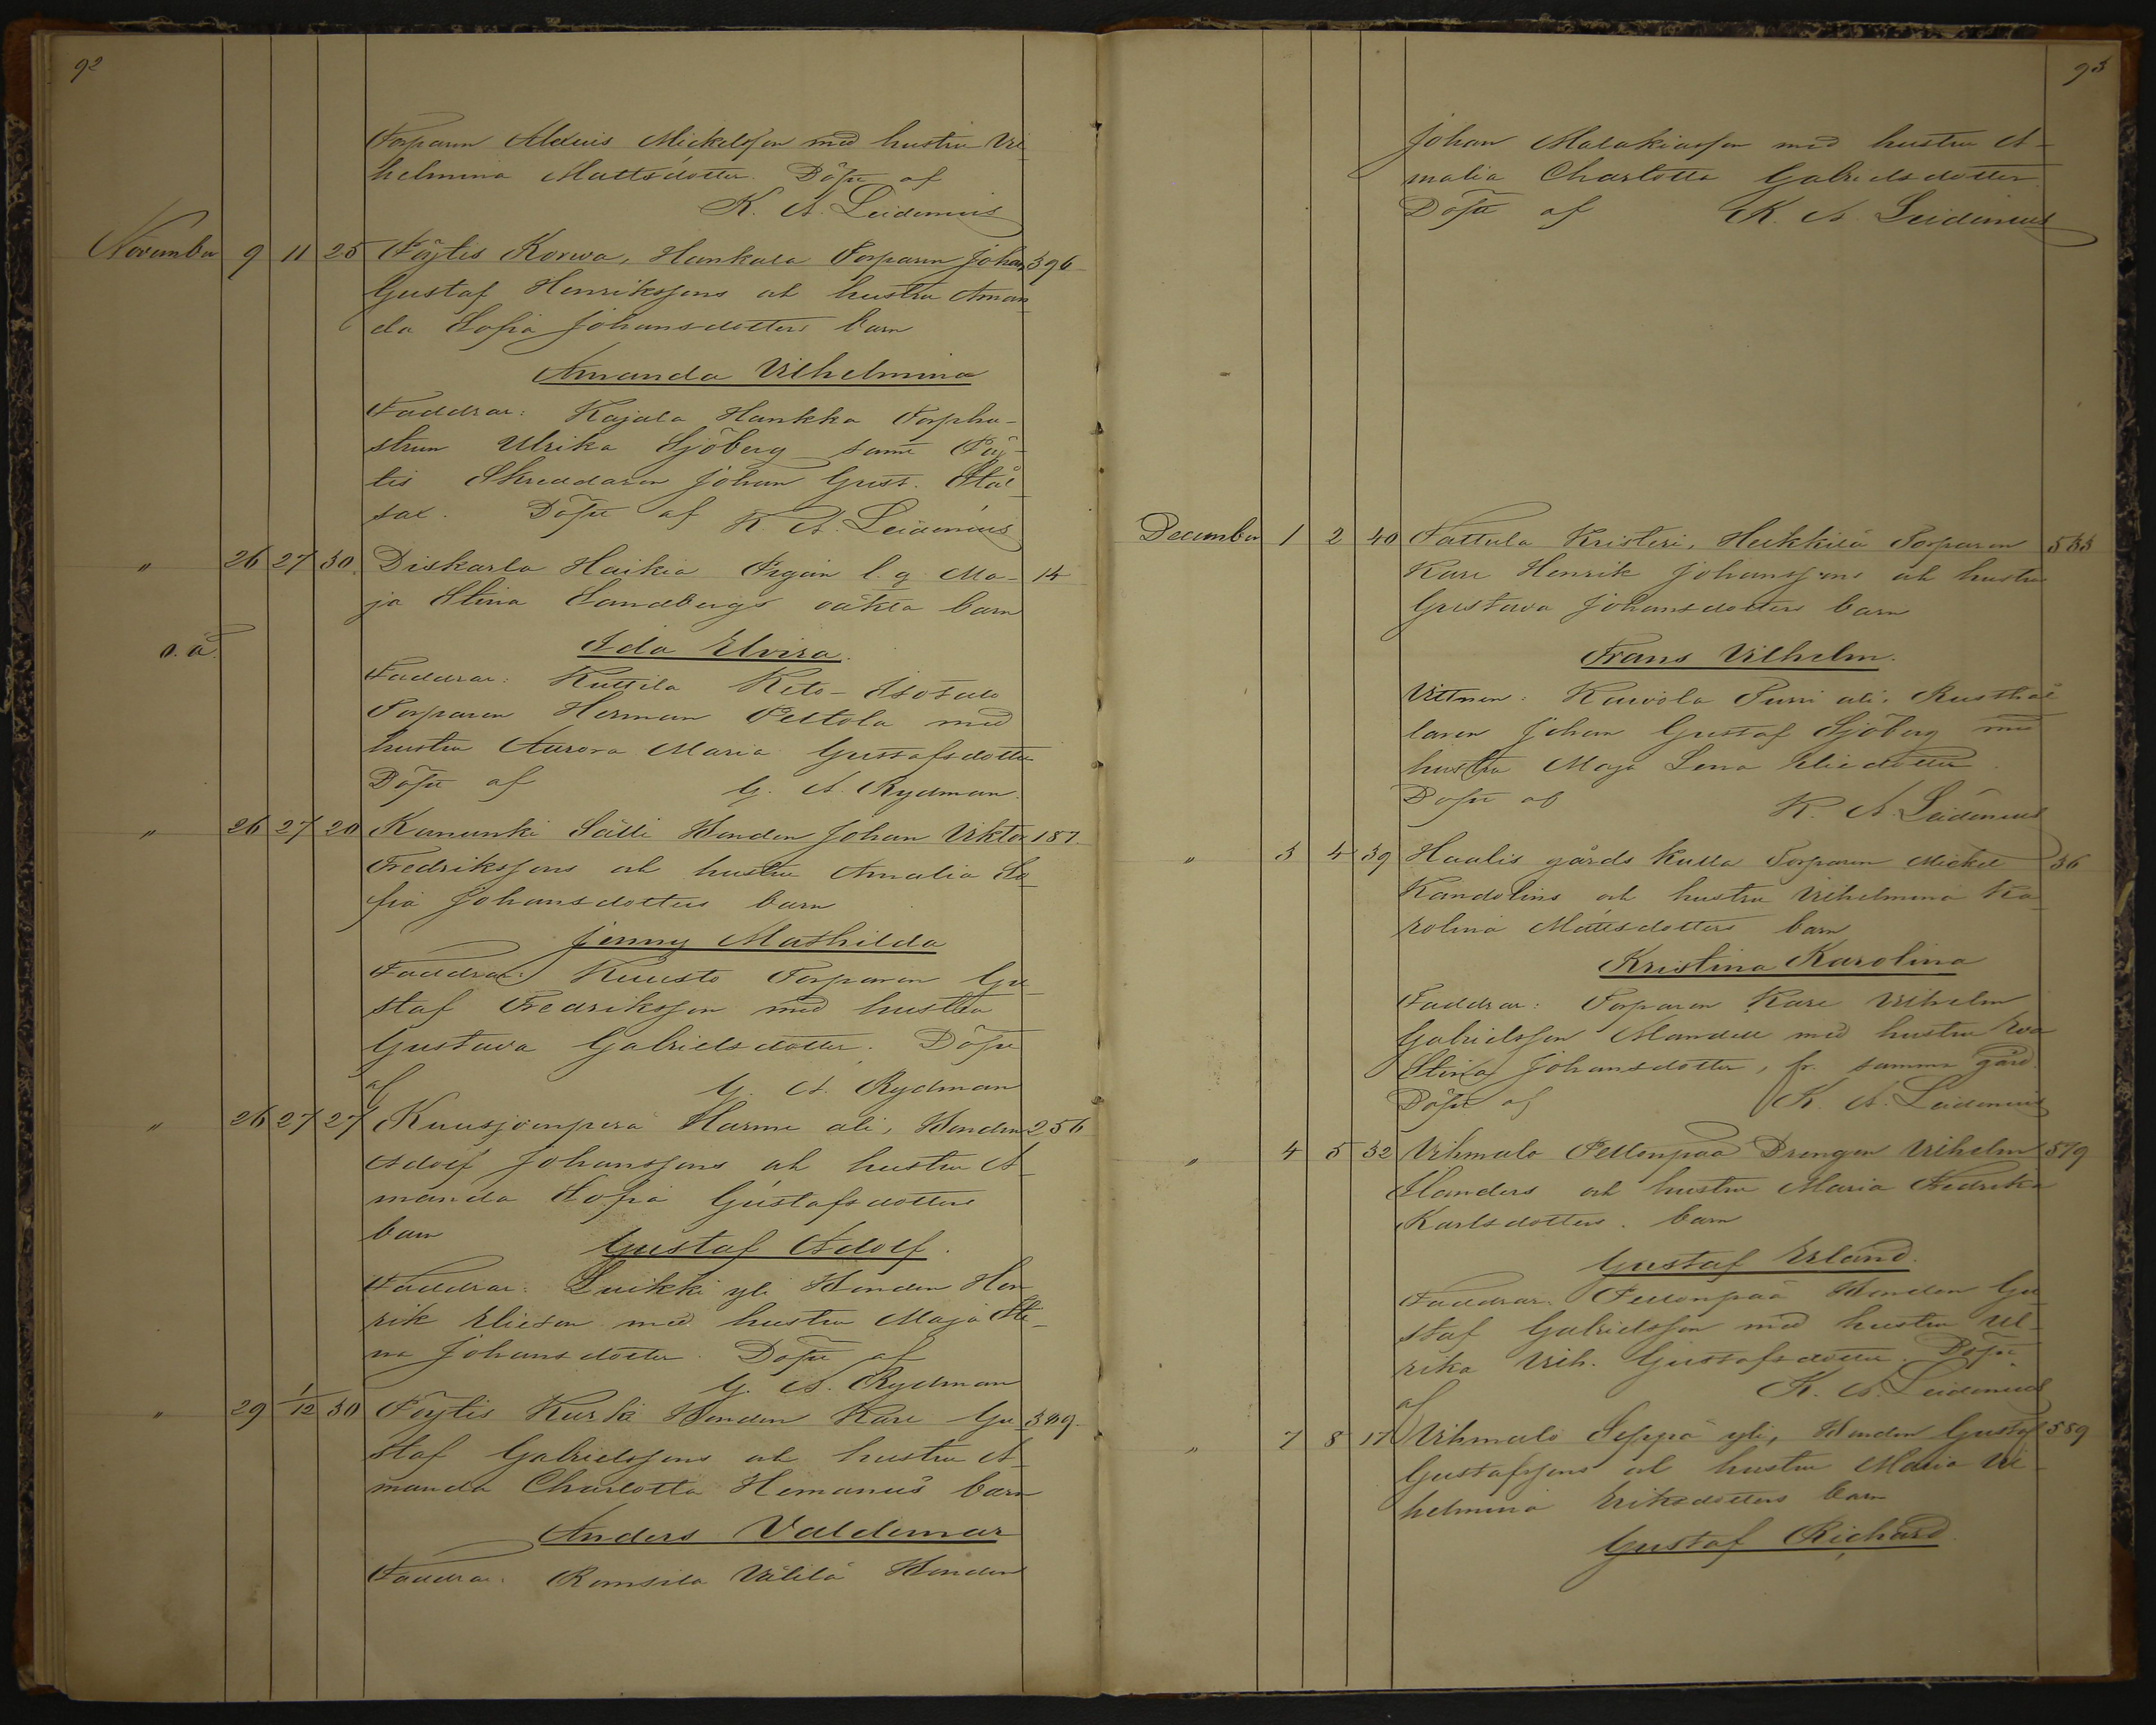 92
Torparen Alexius Mickelsson med hustru Vil-
helmina Mattsdotter. Döpt af
K. A. Leidenius
November 9 11 25 Pöytis Korwa, Hankala Torparen Johan 396
Gustaf Henrikssons och hustru Aman-
da Sofia Johansdotters barn
Amanda Vilhelmina
Faddrar: Kajala Hankka Torphu-
strun Ulrika Sjöberg samt Pöy-
tis Skreddaren Johan Gust. Stål-
sax. Döpt af K. A. Leidenius
" 26 27 30 Diskarla Haikea Pigan l. g. Ma- 14
ja Stina Sandbergs oäkta barn
o.ä. Ida Elvira.
Faddrar: Kuttila Keto-Isotalo
Torparen Herman Peltola med
hustru Aurora Maria Gustafsdotter
Döpt af G. A. Rydman.
" 26 27 20 Kanunki Sälli Bonden Johan Viktor 187.
Fredrikssons och hustru Amalia So-
fia Johansdotters barn
Jenny Mathilda
Faddrar: Kuusto Torparen Gu-
staf Fredriksson med hustru
Gustava Gabrielsdotter. Döpt
af G. A. Rydman
" 26 27 27 Kuusjoenperä Harme ali, Bonden 256
Adolf Johanssons och hustru A-
manda Sofia Gustafsdotters
barn Gustaf Adolf.
Faddrar: Luikki yli Bonden Hen-
rik Elieson med hustru Maja Sti-
na Johansdotter. Döpt af
G. A. Rydman
" 29 1/12 30 Pöytis Kurki Bonden Karl Gu- 389.
staf Gabrielssons och hustru A-
manda Charlotta Hemanus barn
Anders Valdemar
Faddrar: Romsila Välilä Bonden
93
Johan Malakiasson med hustru A-
malia Charlotta Gabrielsdotter.
Döpt af K. A. Leidenius
December 1 2 40 Tattula Kristeri, Heikkilä Torparen 533
Karl Henrik Johanssons och hustru
Gustava Johansdotters barn
Frans Vilhelm.
Vittnen: Kuivola Purri ali, Rusthål-
laren Johan Gustaf Sjöberg med
hustru Maja Lena Eliedotter.
Döpt af K. A. Leidenius
" 3 4 39 Haalis gårds Kulla Torparen Mickel 36
Kandolins och hustru Vilhelmina Ka-
rolina Mattsdotters barn
Kristina Karolina
Faddrar: Torparen Karl Vilhelm
Gabrielsson Mandell med hustru Eva
Stina Johansdotter, fr. samma gård.
Döpt af K. A. Leidenius
" 4 5 32 Vihmalo Pellonpää Drengen Vilhelm 579
Flanders och hustru Maria Fredrika
Karlsdotters barn
Gustaf Erland.
Faddrar: Pellonpää Bonden Gu-
staf Gabrielsson med hustru Ul-
rika Vilh. Gustafsdotter. Döpt
af K. A. Leidenius
" 7 8 17 Vihmalo Seppä yli, Bonden Gustaf 589
Gustafssons och hustru Maria Vil-
helmina Eriksdotters barn
Gustaf Richard.